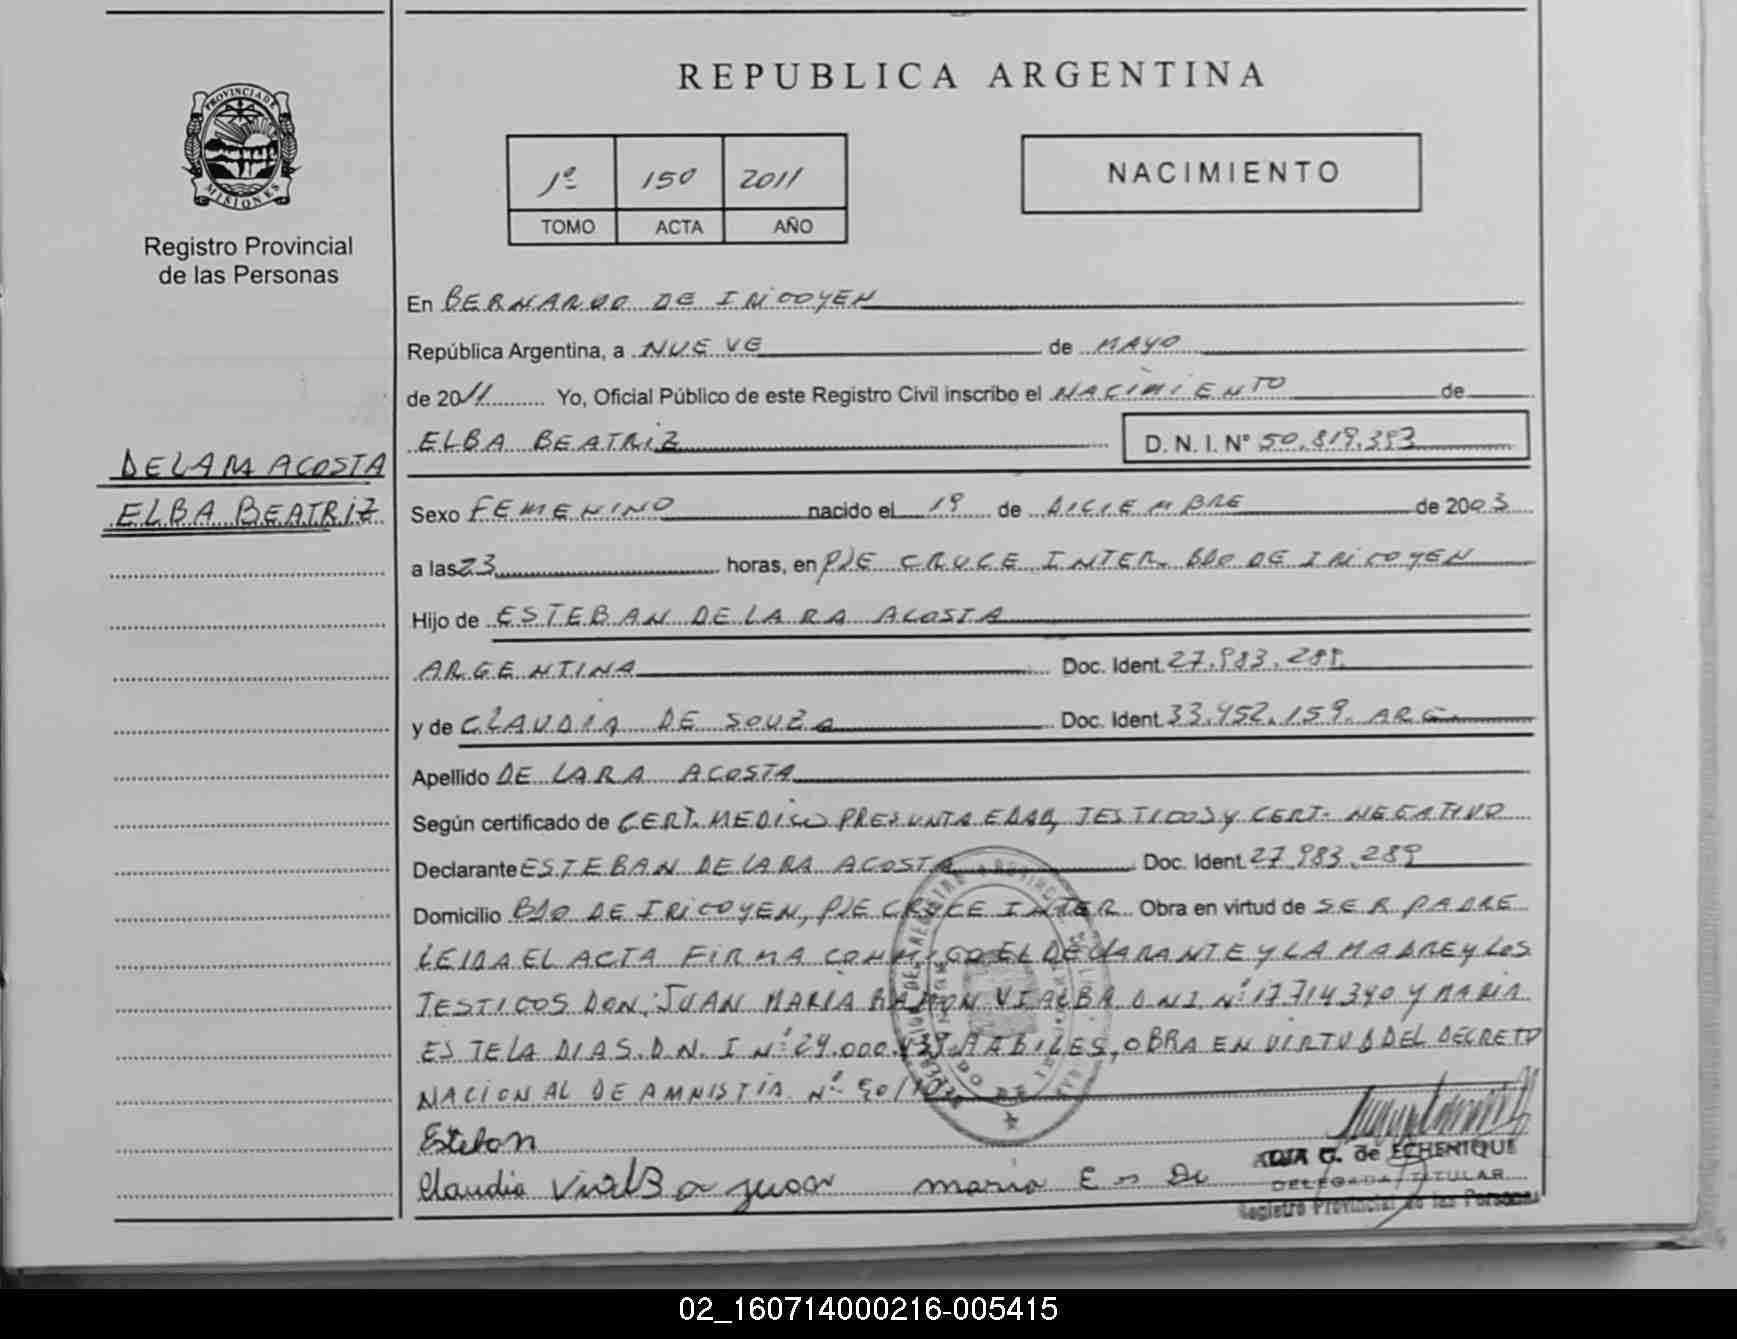 REPUBLICA ARGENTINA
PROVINCIA DE
MISIONES
Registro Provincial
de las Personas
1º 150 2011
TOMO ACTA AÑO
NACIMIENTO
En BERNARDO DE IRIGOYEN
República Argentina, a NUEVE de MAYO
de 2011 Yo, Oficial Público de este Registro Civil inscribo el NACIMIENTO de
ELBA BEATRIZ D. N. I. Nº 50.819.353
DELARA ACOSTA
ELBA BEATRIZ
Sexo FEMENINO nacido el 19 de DICIEMBRE de 2003
a las 23 horas, en PJE CRUCE INTER. BDO DE IRIGOYEN
Hijo de ESTEBAN DE LA RA ACOSTA
ARGENTINA Doc. Ident. 27.983.289
y de CLAUDIA DE SOUZA Doc. Ident. 33.452.159. ARG.
Apellido DE LARA ACOSTA
Según certificado de CERT. MEDICO PRESUNTA EDAD, TESTIGOS y CERT. NEGATIVO
Declarante ESTEBAN DE LARA ACOSTA Doc. Ident. 27.983.289
Domicilio BDO DE IRIGOYEN, PJE CRUCE INTER. Obra en virtud de SER PADRE
LEIDA EL ACTA FIRMA CONMIGO EL DECLARANTE Y LA MADRE y LOS
TESTIGOS DON, JUAN MARIA RAMON VIALBA D.N.I. Nº 17714340 Y MARIA
ESTELA DIAS. D.N.I Nº 29.000. HABILES, OBRA EN VIRTUD DEL DECRETO
NACIONAL DE AMNISTIA. Nº 90/
Esteban
Claudia VialBa juan maria E
G. de ECHENIQUE
DELEGADA TITULAR
Registro Provincial de las Personas
02_160714000216-005415